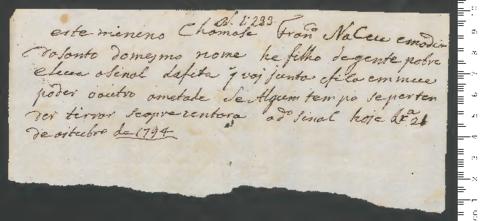 Nº 1233
este menino Chamase Franº Naceu emodia
dosanto domesmo nome he filho degente pobre
eleva osinal dafita q vai junto efica em meu
poder ooutro ametade se Algum tempo seperten
der tirar seaprezentara odº sinal hoje Lxª 21
de oitubro de 1794